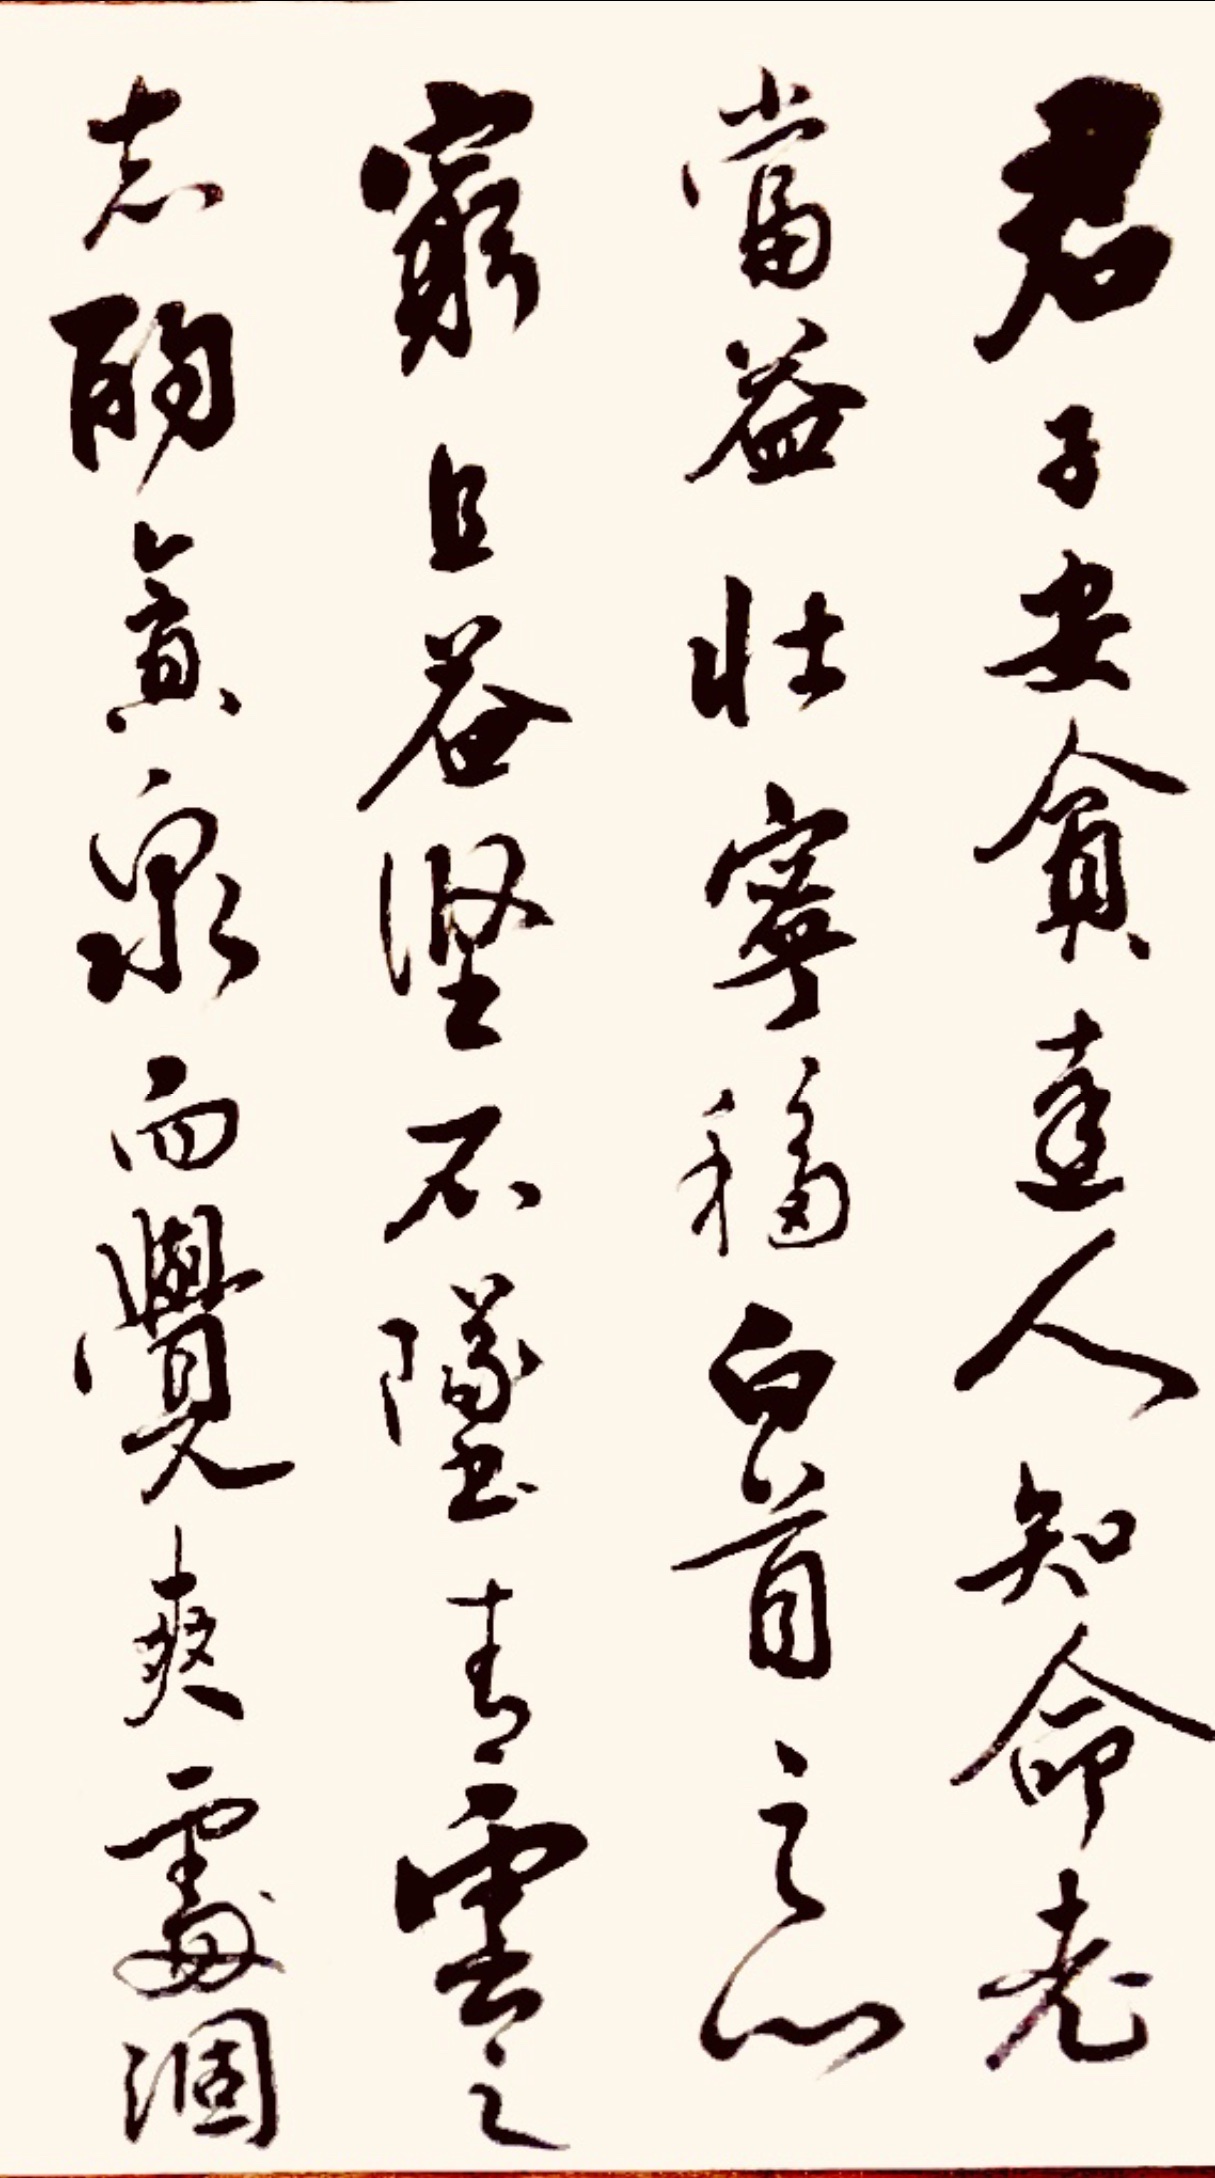 君子安貧達人知命老
當益壯寧移白首之心
窮且益堅不墜青雲之
志酌貪泉而覺爽處涸